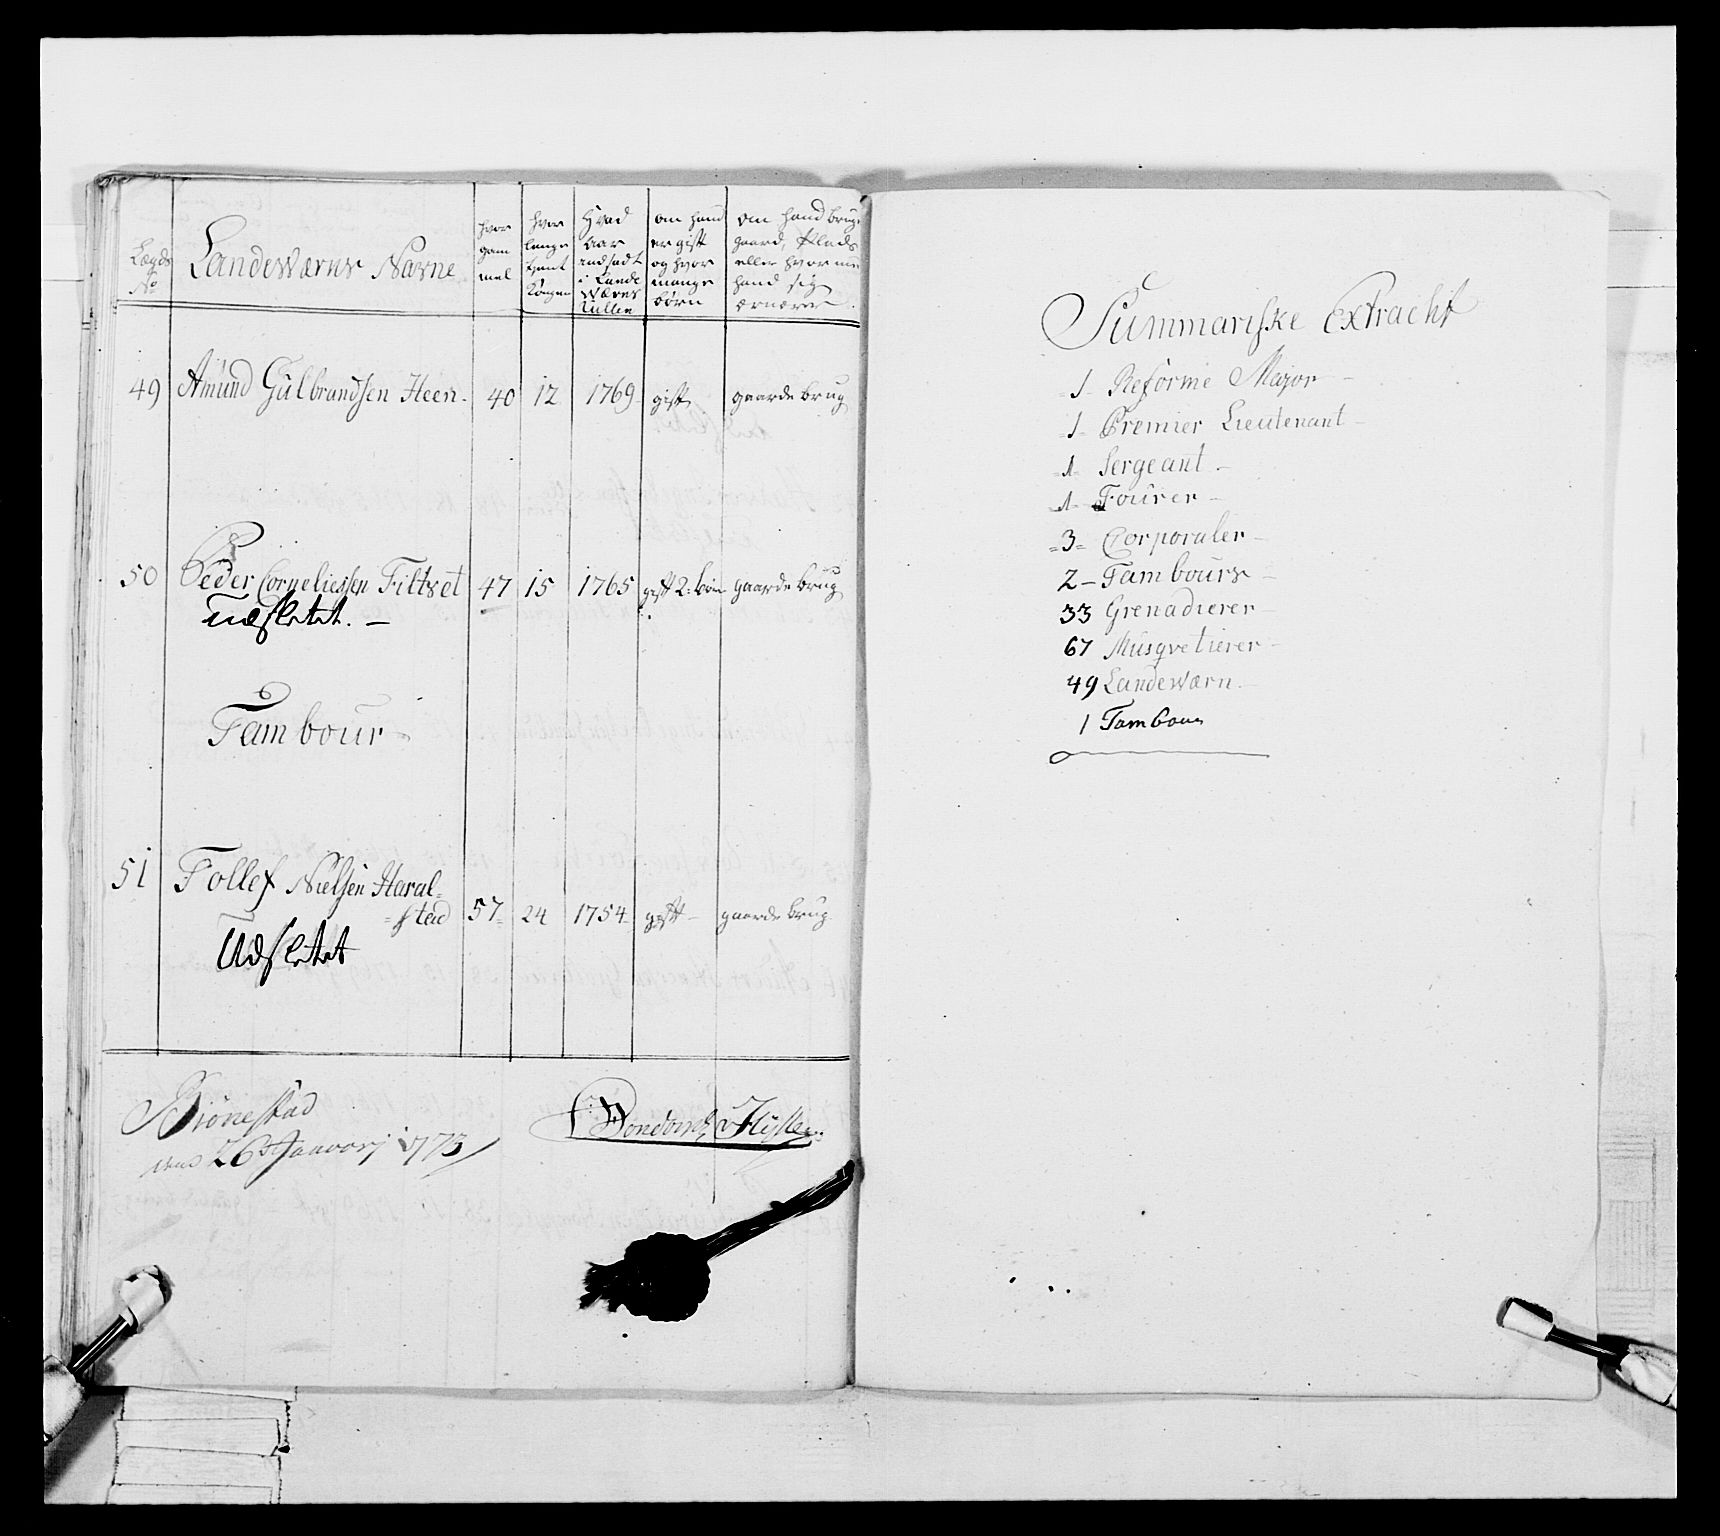 Lægds No
Landeværns Navne
hvor gam mel
hvor lenge tient Kongen
Hvad Aar andsadt i Lande Værns Rullen
om hand er gift og hvor mange børn
om hand bruger gaard, Plads eller hvor med hand sig ærnærer
49 Amund Gulbrandsen Heen 40 12 1769 gift gaarde brug
50 Peder Corneliessen Filtvet 47 15 1765 gift 2: børn gaarde brug
Udslettet. —
Tambour
51 Tollef Nielsen Haral=
=stad 57 24 1754 gift — gaarde brug
Udslettet
Biønestad
den 26de January 1773
Summariske Extracht
1 Reforme Major —
1 Premier Lieutenant —
1 Sergeant —
1 Fourer —
3 Corporaler —
2 — Tambours —
33 Grenadierer —
67 Musqvetierer —
49 Landeværn —
1 Tambour